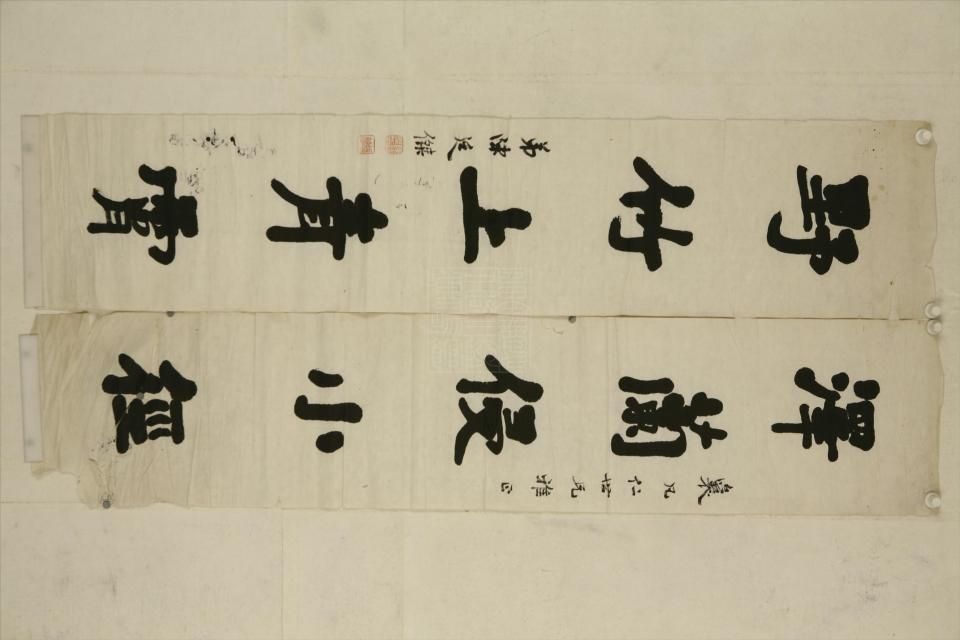 凡仁世兄雅正
澤蘭侵小徑
野竹上青霄
弟陳延傑